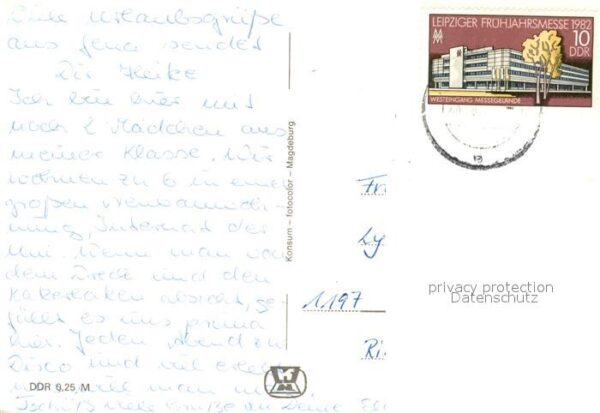 Liebe Urlaubsgrüße
aus Jena sendet
Dir Heike
Ich bin hier mit
noch 2 Mädchen aus
meiner Klasse. Wir
wohnen zu 6 in einer
großen
Internat der
Uni. Wenn man von
dem Dreck und den
Kakerlaken absieht, ge-
fällt es uns prima
hier. Jeden Abend zur
Disco und viel
man
Tschüß viele Grüße an Deine
DDR 0,25 M
Konsum - fotocolor - Magdeburg
LEIPZIGER FRÜHJAHRSMESSE 1982
10
DDR
WESTEINGANG MESSEGELÄNDE
1197
privacy protection
Datenschutz